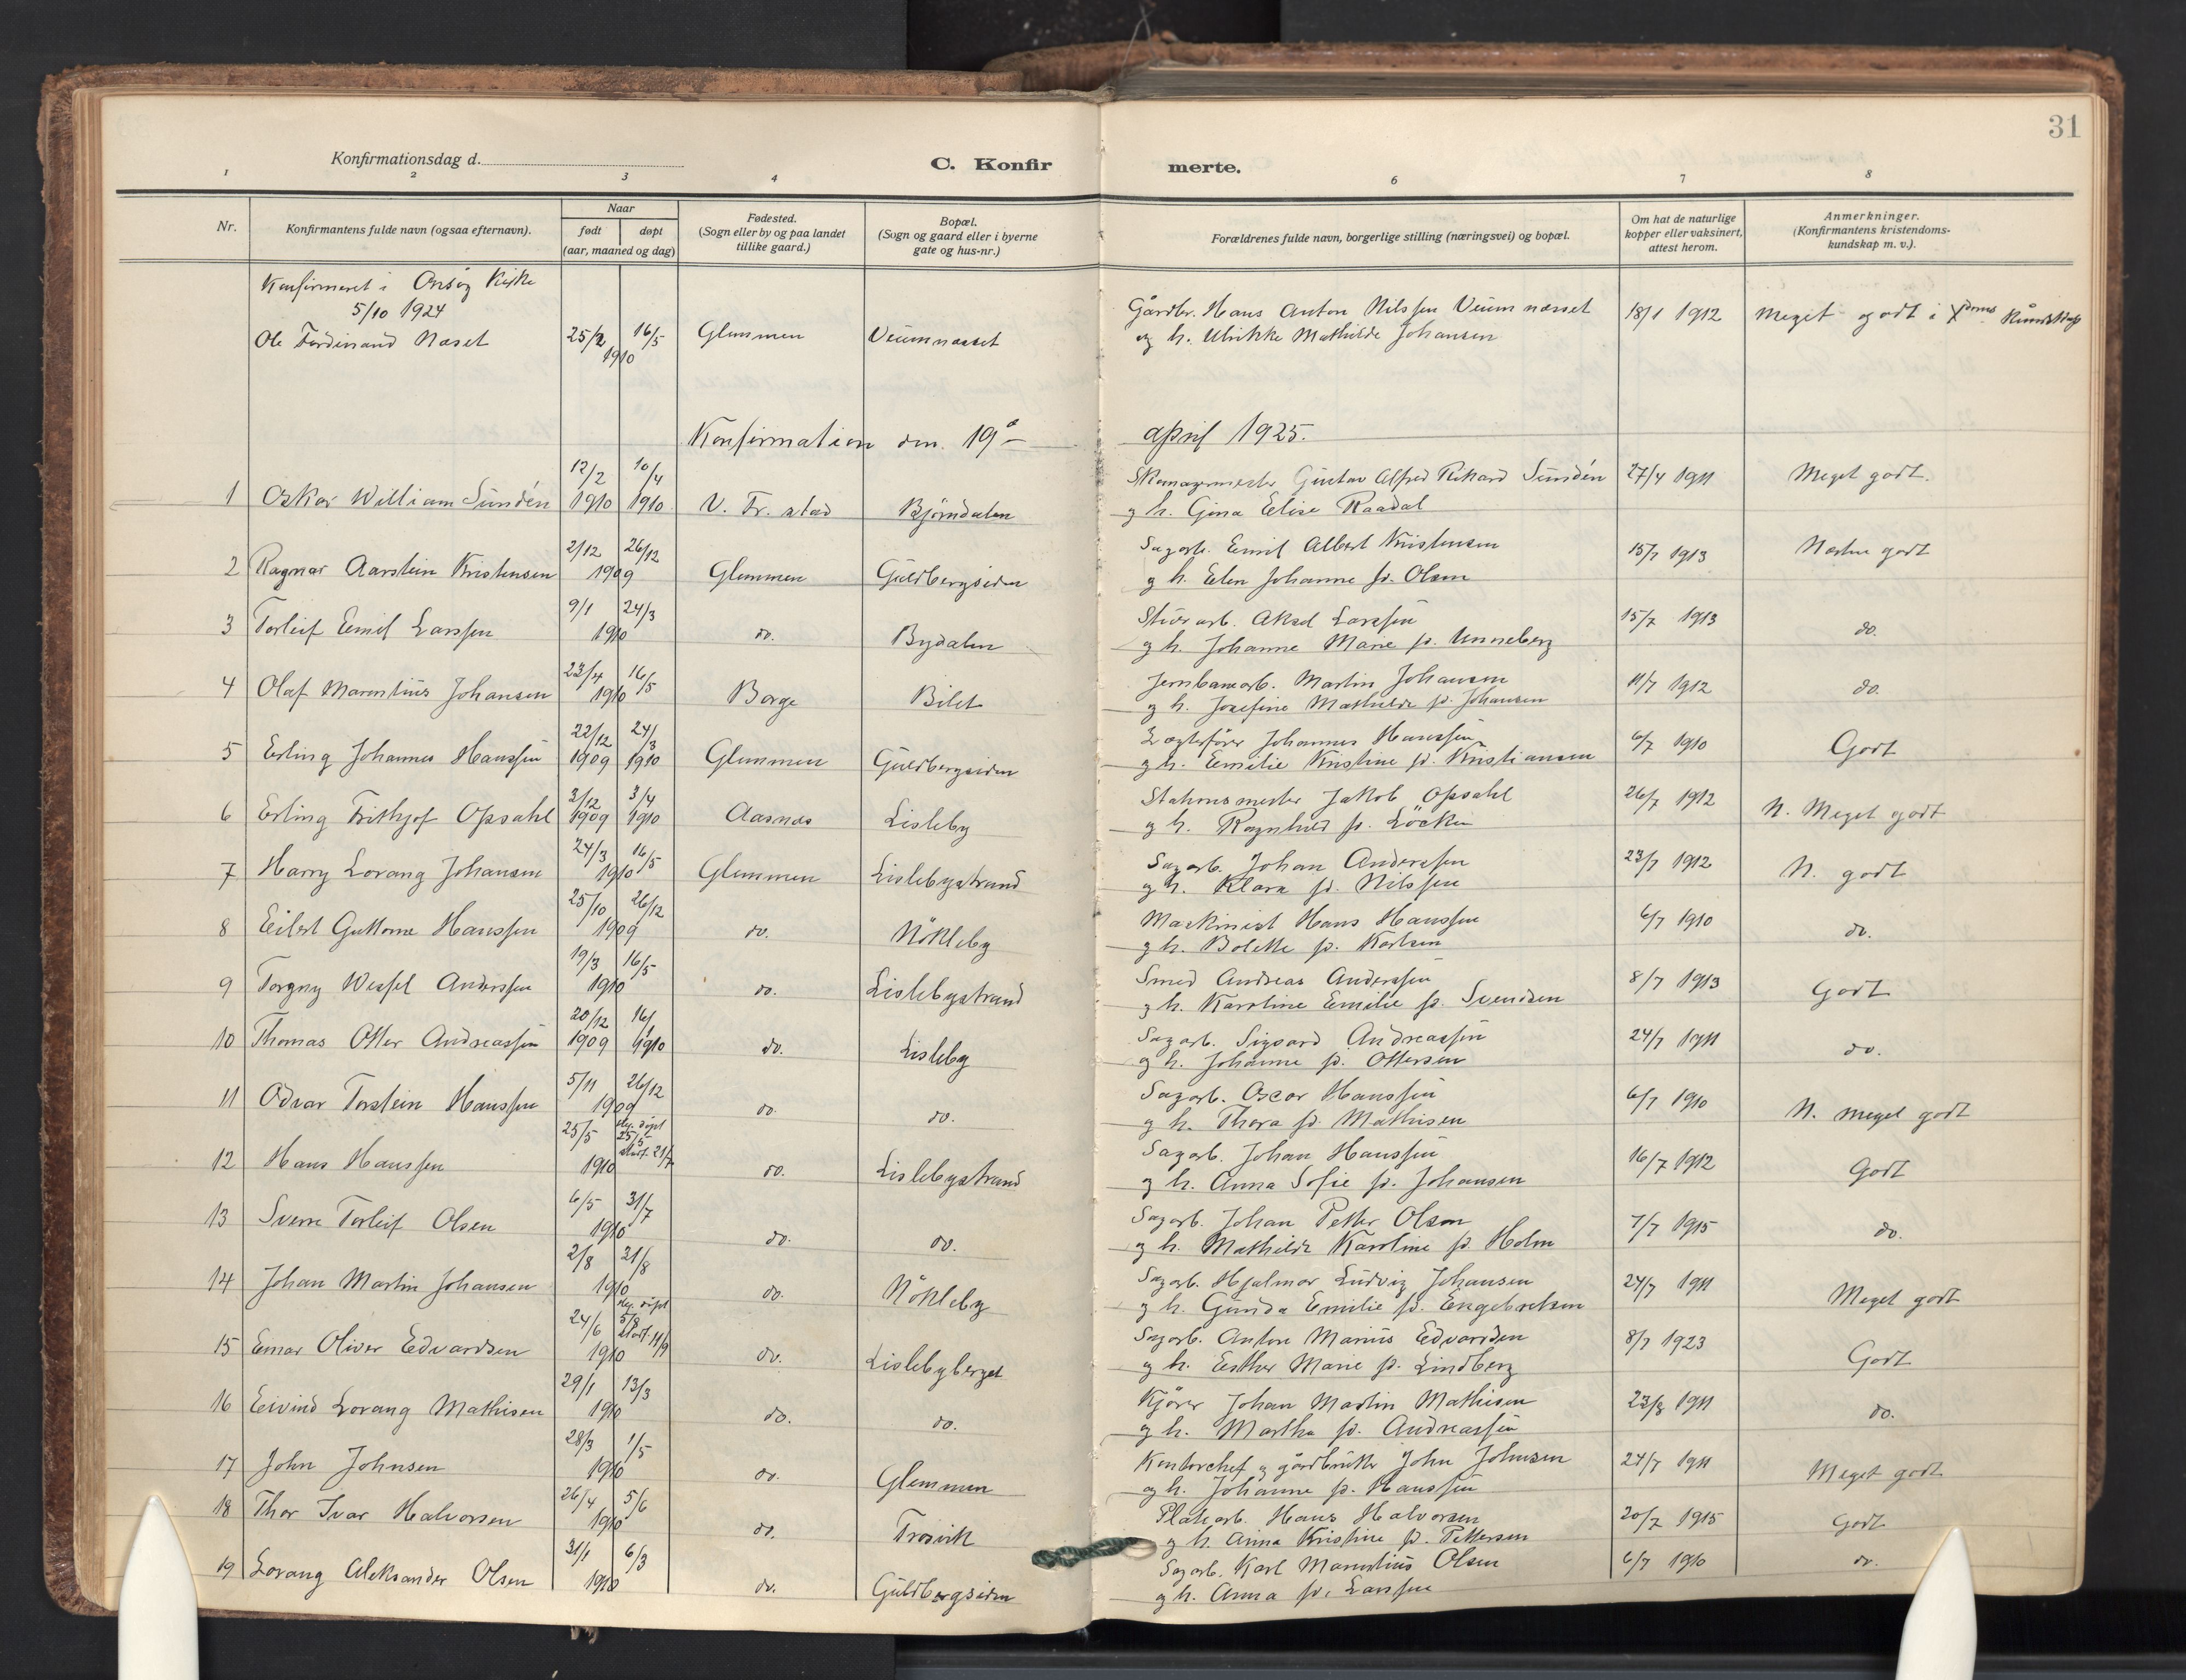 31
Konfirmationsdag d.
C. Konfir
merte.
1 2 3 4 6 7 8
Nr.
Konfirmantens fulde navn (ogsaa efternavn).
Naar
født
døpt
(aar, maaned og dag)
Fødested.
(Sogn eller by og paa landet
tillike gaard.)
Bopæl.
(Sogn og gaard eller i byerne
gate og hus-nr.)
Forældrenes fulde navn, borgerlige stilling (næringsvei) og bopæl.
Om hat de naturlige
kopper eller vaksinert,
attest herom.
Anmerkninger.
(Konfirmantens kristendoms-
kundskap m. v.).
Konfirmeret i Onsøy Kirke
5/10 1924
Ole Ferdinand Næset 25/2 16/5 1910 Glemmen Veumnæsset
Gårdbr. Hans Anton Nilssen Veumnæsset 18/1 1912 Meget godt i Xdoms Kundskap
og h. Ulrikke Mathilde Johansen
Konfirmation den 19de april 1925.
1 Oskar William Sundén 12/2 1910 10/4 1910 V. Fr. stad Bjørndalen
Gustav Alfred Rikard Sundén 27/4 1911 Meget godt.
og h. Gina Elise Raadal
2 Ragnar Aarstein Kristensen 2/12 26/12 1909 Glemmen Guldbergsiden
Sagarb. Emil Albert Kristensen 15/7 1913 Næsten godt
og h. Elen Johanne f. Olsen
3 Torleif Emil Larssen 9/1 24/3 1910 do. Bydalen
Aksel Larssen 15/7 1913 do.
og h. Johanne Marie f. Unneberg
4 Olaf Marentius Johansen 23/4 16/5 1910 Borge Bilet
Jernbanearb. Martin Johansen 11/7 1912 do.
og h. Josefine Mathilde f. Johansen
5 Erling Johannes Hanssen 22/12 1909 24/3 1910 Glemmen Guldbergsiden
Lægterfører Johannes Hanssen 6/7 1910 Godt
og h. Emilie Kristine f. Kristiansen
6 Erling Frithjof Opsahl 3/12 1909 3/4 1910 Aasnes Lisleby
Stationsmester Jakob Opsahl 26/7 1912 N. Meget godt
og h. Ragnhild f. Löcken
7 Harry Lorang Johansen 24/3 16/5 1910 Glemmen Lislebystrand
Sagarb. Johan Anderssen 23/7 1912 N. godt
og h. Klara f. Nilssen
8 Eilert Guttorm Hanssen 25/10 26/12 1909 do. Nökleby
Maskinist Hans Hanssen 6/7 1910 do.
og h. Bolette f. Karlsen
9 Torgny Wessel Anderssen 19/3 16/5 1910 do. Lislebystrand
Smed Andreas Anderssen 8/7 1913 Godt
og h. Karoline Emilie f. Svendsen
10 Thomas Otter Andreassen 20/12 1909 16/1 1910 do. Lisleby
Sagarb. Sigvard Andreassen 24/7 1911 do.
og h. Johanne f. Ottersen
11 Odvar Torstein Hanssen 5/11 26/12 1909 do. do.
Sagarb. Oscar Hanssen 6/7 1910 N. meget godt
og h. Thora f. Mathisen
12 Hans Hanssen 25/5 1910 hj. döpt 25/5 stadf. 21/7 do. Lislebystrand
Sagarb. Johan Hanssen 16/7 1912 Godt
og h. Anna Sofie f. Johansen
13 Sverre Torleif Olsen 6/5 31/7 1910 do. do.
Sagarb. Johan Petter Olsen 7/7 1915 do.
og h. Mathilde Karoline f. Holm
14 Johan Martin Johansen 2/8 21/8 1910 do. Nökleby
Sagarb. Hjalmar Ludvig Johansen 24/7 1911 Meget godt
og h. Gunda Emilie f. Engebretsen
15 Einar Oliver Edvardsen 24/6 1910 hj. döpt 5/8 stadf. 11/9 do. Lislebyberget
Sagarb. Anton Marius Edvardsen 8/7 1923 Godt
og h. Esther Marie f. Lindberg
16 Eivind Lorang Mathisen 29/1 13/3 1910 do. do.
Kjører Johan Martin Mathisen 23/8 1911 do.
og h. Martha f. Andreassen
17 John Johnsen 28/3 1/5 1910 do. Glemmen
Kontorchef og gårdbruker John Johnsen 24/7 1911 Meget godt
og h. Johanne f. Hanssen
18 Thor Ivar Halvorsen 26/4 5/6 1910 do. Trosvik
Platearb. Hans Halvorsen 20/7 1915 Godt
og h. Anna Kristine f. Pettersen
19 Lorang Aleksander Olsen 31/1 6/3 1910 do. Guldbergsiden
Sagarb. Karl Marentius Olsen 6/7 1910 do.
og h. Anna f. Larssen